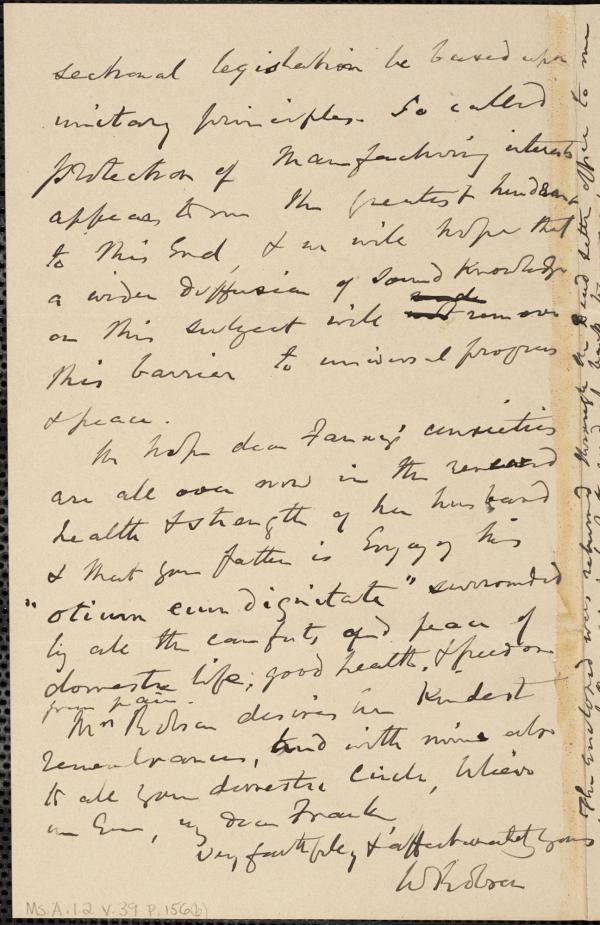 sectional legislation be based upon
unitary principles. So called
protection of Manufacturing interests
appears to me the greatest hindrance
to this End, & we will hope that
a wider diffusion of sound Knowledge
on this subject will remove
this barrier to universal progress
& peace.
We hope dear Fanny's anxieties
are all over now in the renewed
health & strength of her husband
& that your father is Enjoying his
"otium cum dignitate" surrounded
by all the comforts and peace of
domestic life; good health, & freedom
from pain.
Mrs Robson desires her Kindest
remembrances, and with mine also
to all your domestic circle, believe
me Ever, my dear Frank
Very faithfully & affectionately yours
W Robson
The enclosed was returned through the Dead letter office to me
Ms. A. 1.2 v. 39 p. 156(b)